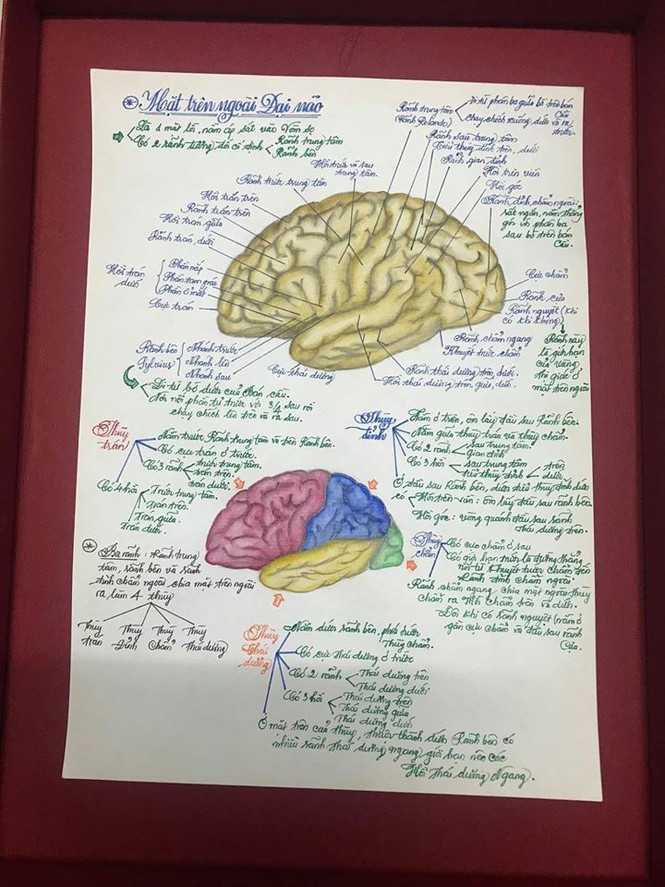 Mặt trên ngoài Đại não
Là 1 mặt lồi, nằm áp sát vào Vòm sọ
Có 2 rãnh tương đối cố định
Rãnh trung tâm
Rãnh bên
Rãnh trung tâm
(Rãnh Rolando)
Đi từ phần ba giữa bờ trên bán cầu
Chạy chếch xuống dưới và ra trước.
Rãnh sau trung tâm
Tiểu thùy đỉnh trên, dưới
Rãnh gian đỉnh
Hồi trên viền
Hồi góc
Rãnh đỉnh chẩm ngoài:
rất ngắn, nằm thẳng
góc với phần ba
sau bờ trên bán
Cầu.
Hồi trước và sau
trung tâm
Rãnh trước trung tâm
Hồi trán trên
Rãnh trán trên
Hồi trán giữa
Rãnh trán dưới
Hồi trán dưới
Phần nắp
Phần tam giác
Phần ổ mắt
Cực trán
Cực chẩm
Rãnh cựa
Rãnh nguyệt (khi
có khi không)
Rãnh này
là giới hạn
của vùng
thị giác ở
mặt trên ngoài
Rãnh chẩm ngang
Khuyết trước chẩm
Rãnh thái dương trên, dưới
Hồi thái dương trên, giữa, dưới.
Rãnh bên
Sylvius
Nhánh trước
Nhánh lên
Nhánh sau
Cực thái dương
Đi từ bờ dưới của Bán cầu.
Nơi nối phần tư trước với 3/4 sau rồi
chạy chếch lên trên và ra sau.
Thùy trán
Nằm trước Rãnh trung tâm và trên Rãnh bên.
Có cực trán ở trước.
Có 3 rãnh
trước trung tâm.
trán trên.
trán dưới.
Có 4 hồi
Trước trung tâm.
Trán trên.
Trán giữa.
Trán dưới.
Thùy đỉnh
Nằm ở trên, ôm lấy đầu sau Rãnh bên.
Nằm giữa thùy trán và thùy chẩm
Có 2 rãnh
sau trung tâm.
gian đỉnh
Có 3 hồi
sau trung tâm
tiểu thùy đỉnh
trên
dưới
Ở đầu sau Rãnh bên, dưới tiểu thùy đỉnh dưới
có
Hồi trên viền: ôm lấy đầu sau rãnh bên
Hồi góc: vòng quanh đầu sau rãnh
Thái dương trên.
Ba rãnh: Rãnh trung
tâm, rãnh bên và rãnh
đỉnh chẩm ngoài chia mặt trên ngoài
ra làm 4 thùy
Thùy trán
Thùy Đỉnh
Thùy Chẩm
Thùy Thái dương
Thùy chẩm
Có cực chẩm ở sau
Có giới hạn trước là đường thẳng
nối từ Khuyết trước chẩm đến
Rãnh đỉnh chẩm ngoài.
Rãnh chẩm ngang, chia mặt ngoài thùy
chẩm ra Hồi chẩm trên và dưới.
Đôi khi có Rãnh nguyệt (nằm ở
gần cực chẩm và đầu sau rãnh
Cựa.
Thùy Thái dương
Nằm dưới rãnh bên, phía trước
Thùy chẩm.
Có cực thái dương ở trước
Có 2 rãnh
Thái dương trên
Thái dương dưới
Có 3 hồi
Thái dương trên
Thái dương giữa
Thái dương dưới
Ở mặt trên của thùy, thuộc thành dưới Rãnh bên có
nhiều rãnh thái dương ngang giới hạn nên các
Hồi thái dương Ngang.